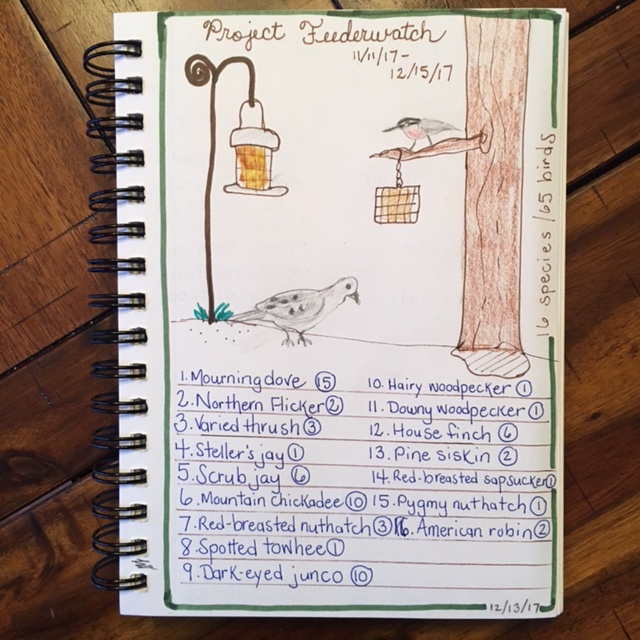 Project Feederwatch
11/11/17-
12/15/17
16 species/65 birds
1. Mourning dove 15
2. Northern Flicker 2
3. Varied thrush 3
4. Steller's jay 1
5. Scrub jay 6
6. Mountain chickadee 10
7. Red-breasted nuthatch 3
8. Spotted towhee 1
9. Dark-eyed junco 10
10. Hairy woodpecker 1
11. Downy woodpecker 1
12. House finch 6
13. Pine siskin 2
14. Red-breasted sapsucker 1
15. Pygmy nuthatch 1
16. American robin 2
12/13/17